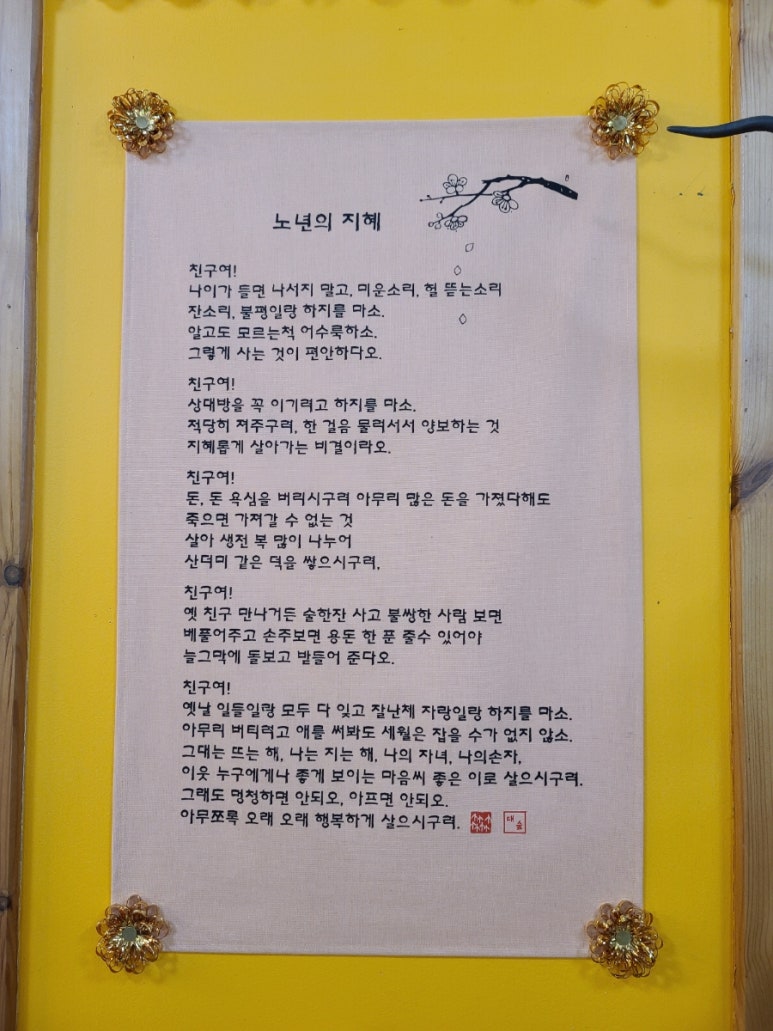 노년의 지혜
친구여!
나이가 들면 나서지 말고, 미운소리, 헐 뜯는소리
잔소리, 불평일랑 하지를 마소.
알고도 모르는척 어수룩하소.
그렇게 사는 것이 편안하다오.
친구여!
상대방을 꼭 이기려고 하지를 마소.
적당히 져주구려, 한 걸음 물러서서 양보하는 것
지혜롭게 살아가는 비결이라오.
친구여!
돈, 돈 욕심을 버리시구려 아무리 많은 돈을 가졌다해도
죽으면 가져갈 수 없는 것
살아 생전 복 많이 나누어
산더미 같은 덕을 쌓으시구려,
친구여!
옛 친구 만나거든 술한잔 사고 불쌍한 사람 보면
베풀어주고 손주보면 용돈 한 푼 줄수 있어야
늘그막에 돌보고 받들어 준다오.
친구여!
옛날 일들일랑 모두 다 잊고 잘난체 자랑일랑 하지를 마소.
아무리 버티려고 애를 써봐도 세월은 잡을 수가 없지 않소.
그대는 뜨는 해, 나는 지는 해, 나의 자녀, 나의손자,
이웃 누구에게나 좋게 보이는 마음씨 좋은 이로 살으시구려.
그래도 멍청하면 안되오, 아프면 안되오.
아무쪼록 오래 오래 행복하게 살으시구려.
대숲